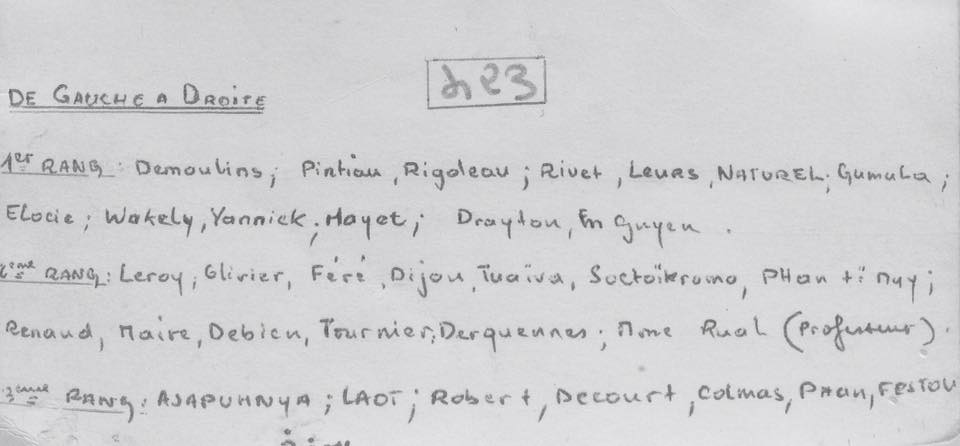 DE GAUCHE A DROITE
1er RANG: Demoulins; Pintiau, Rigoleau; Rivet, Leurs, NATUREL; Gumula;
Elocie; Wakely, Yannick; Mayet; Drayton, Guyen.
2eme RANG: Leroy, Olivier, Féré, Dijou, Tuaïva, Soctoïkromo, PHan tï Muy;
Renaud, Maire, Debien, Tournier, Derquennes; Mme Rual (Professeur).
3eme RANG: AJAPUHNYA; LAOÏ; Robert, Decourt, Colmas, PHan, FESTOU